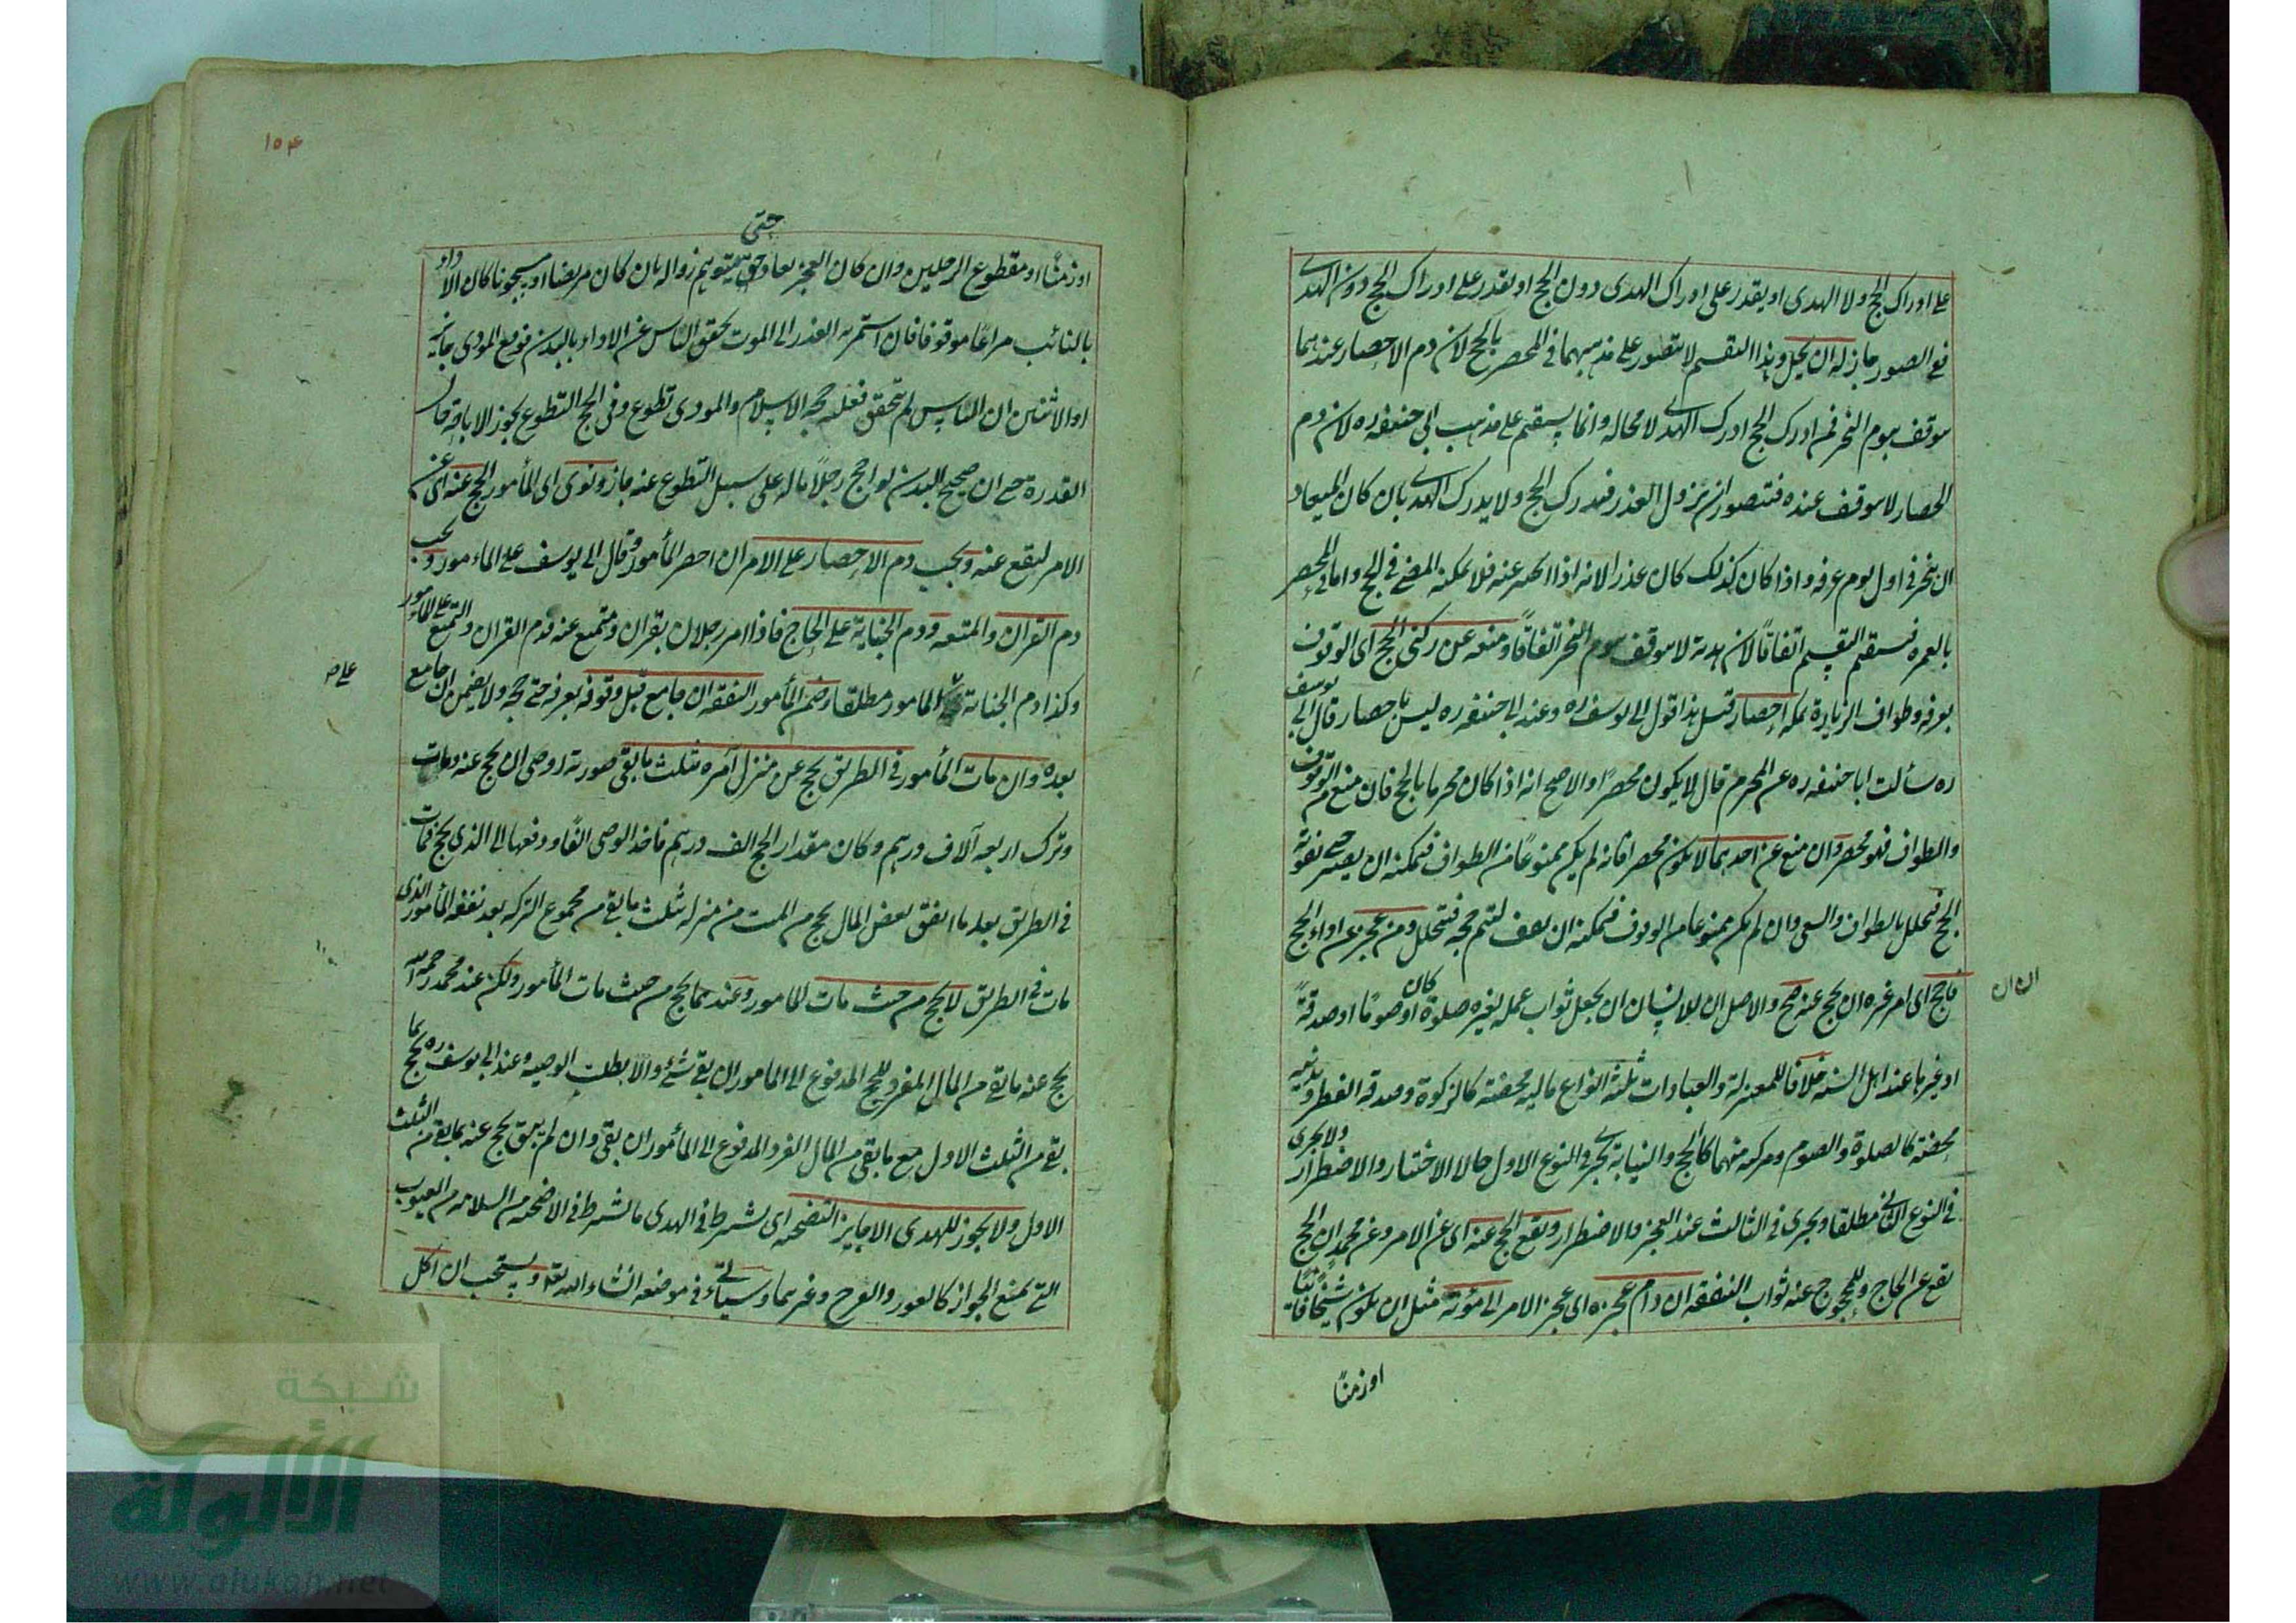 على ادراك الحج ولا الهدى او يقدر على ادراك الهدى دون الحج او يقدر على ادراك الحج دون الهدى
ففى الصور جاز له ان يحل وهذا التقسيم لا يتصور على مذهبهما فى المحصر بالحج لان دم الاحصار عندهما
موقف بيوم النحر فمن ادرك الحج ادرك الهدى لا محاله وانما يستقيم على مذهب ابى حنيفه ره لان دم
الحصار لا موقف عنده فيتصور ان يزول العذر فيدرك الحج ولا يدرك الهدى بان كان الميعاد
ان ينحر فى اول يوم عرفه واذا كان كذلك كان عذرا لانه اذا عنه فلا يمكنه المضى فى الحج واما فى المحصر
بالعمره فيستقيم التقسيم اتفاقا لان هديه لا موقف بيوم النحر اتفاقا ومنعه عن ركنى الحج اى الوقوف
بعرفه وطواف الزيارة بمكه احصار قيل هذا قول ابى يوسف ره وعند ابى حنيفه ره ليس باحصار قال ابى يوسف
ره سألت ابا حنيفه ره عن المحرم قال لا يكون محصرا والاصح انه اذا كان محرما بالحج فان منع من الوقوف
والطواف فهو محصر وان منع عن احدهما لا يكون محصرا فانه لم يكن ممنوعا من الطواف فيمكنه ان يصبر حتى يفوته
الحج فيتحلل بالطواف والسعى وان لم يكن ممنوعا من الوقوف فيمكنه ان يقف ليتم حجه فيتحلل ومن عجز عن اداء الحج
فاحج اى امر غيره ان يحج عنه صح والاصل ان للانسان ان يجعل ثواب عمله لغيره صلوة كان او صوما او صدقة
او غيرها عند اهل السنه خلافا للمعتزلة والعبادات ثلثة انواع ماليه محضة كالزكوة وصدقه الفطر وبدنيه
محضة كالصلوة والصوم ومركبه منهما كالحج والنيابة تجرى فى النوع الاول حالا الاختيار والاضطرار ولا يجرى
فى النوع الثانى مطلقا ويجرى فى الثالث عند العجز والاضطرار ويقع الحج عنه اى عن الامر وعن محمد ان الحج
يقع عن الحاج وللمحجوج عنه ثواب النفقه ان دام عجزه اى عجز الامر الى موته مثل ان يكون شيخا فانيا
او زمنًا
او زمنًا او مقطوع الرجلين وان كان العجز بعارض يتوهم زواله بان كان مريضا او مسجونا كان الاداء
حتى
بالنائب مراعًا موقوفا فان استمر به العذر الى الموت تحقق الياس عن الاداء بالبدن فوقع المودى
ان الياس لم يتحقق فعليه حجه الاسلام والمودى تطوع وفى الحج التطوع يجوز الانابة حال
القدرة حتى ان صحيح البدن لو احج رجلا بماله على سبيل التطوع عنه جاز ونوى اى المأمور الحج عنه اى عن
الامر ليقع عنه ويجب دم الاحصار على الامر ان احصر المأمور وقال ابى يوسف على المامور ويجب
دم القران والمتعه ودم الجناية على الحاج فاذا امر رجلان بقران ومتمتع عنه فدم القران والتمتع على المامور
وكذا دم الجناية المامور مطلقا وضمن المأمور النفقه ان جامع قبل وقوفه بعرفه حتى حجه ولا يضمن ان جامع
بعده وان مات المأمور فى الطريق يحج عن منزل آمره بثلث ما بقى صورته اوصى ان يحج عنه ومات
وترك اربعه آلاف درهم وكان مقدار الحج الف درهم فاخذ الوصى الفًا ودفعها الى الذى يحج فمات
فى الطريق بعد ما انفق بعض المال يحج من الميت من منزله بثلث ما بقى من مجموع التركه بعد نفقه المأمور الذى
مات فى الطريق لا يحج من حيث مات المامور وعندهما يحج من حيث مات المأمور ولكن عند محمد رحمه الله
يحج عنه ما بقى من المال المفروز للحج المدفوع الى المامور ان بقى شئ والا بطلت الوصيه وعند ابى يوسف ره يحج بما
بقى من الثلث الاول مع ما بقى من المال المدفوع الى المأمور ان بقى وان لم يبق يحج عنه بما بقى من الثلث
الاول ولا يجوز للهدى الا جايز التضحيه اى يشترط فى الهدى ما يشترط فى الاضحيه من السلامه من العيوب
التى تمنع الجواز كالعور والعرج وغيرهما وسيأتى فى موضعه انشاء الله تعه ويستحب ان اكل
١٥٤
شبكة
الألوكة
www.alukah.net